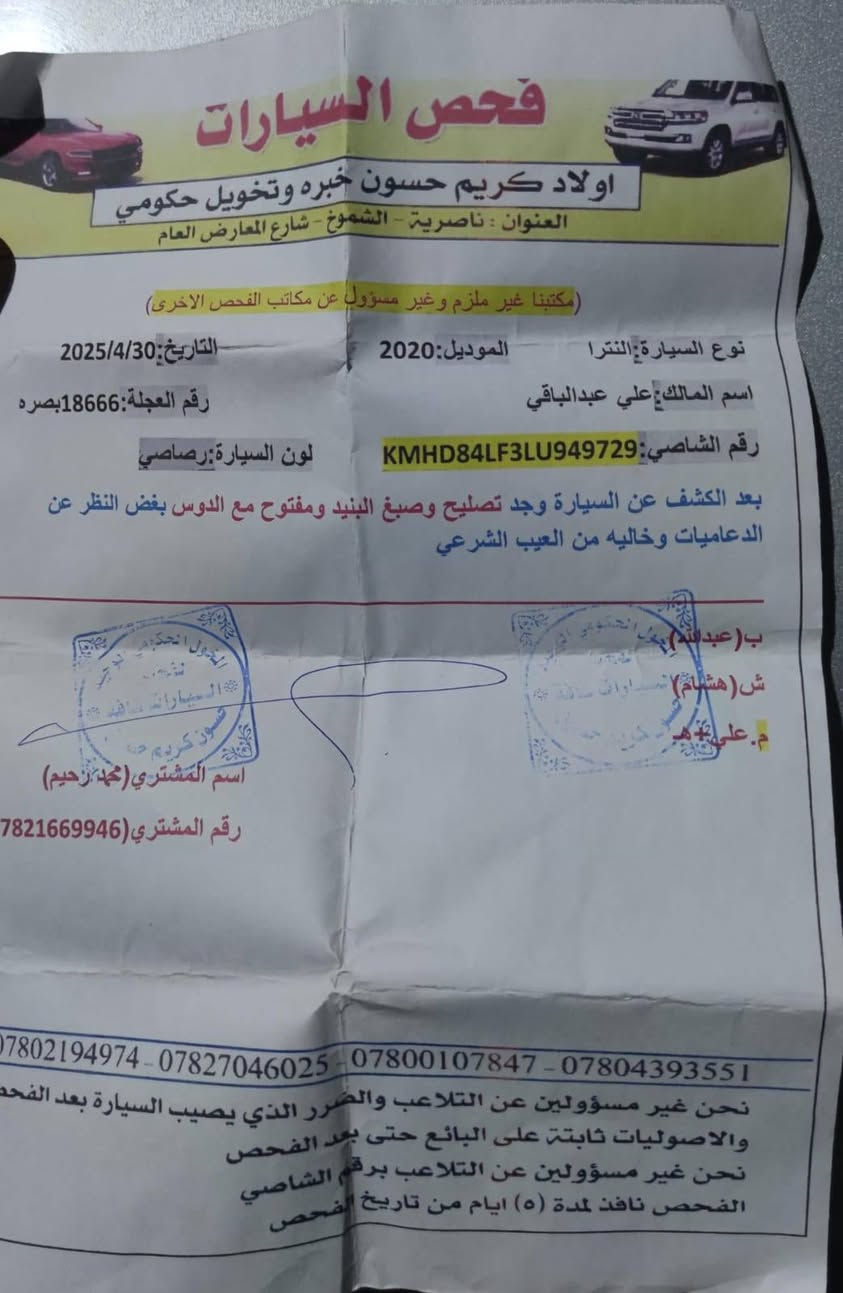 فحص السيارات
اولاد كريم حسون خبره وتخويل حكومي
العنوان : ناصرية - الشموخ - شارع المعارض العام
(مكتبنا غير ملزم وغير مسؤول عن مكاتب الفحص الاخرى)
نوع السيارة:النترا الموديل:2020 التاريخ:2025/4/30
اسم المالك:علي عبدالباقي رقم العجلة:18666بصره
رقم الشاصي:KMHD84LF3LU949729 لون السيارة:رصاصي
بعد الكشف عن السيارة وجد تصليح وصبغ البنيد ومفتوح مع الدوس بغض النظر عن
الدعاميات وخاليه من العيب الشرعي
ب(عبدالله)
ش(هشام)
م.علي+هـ
السيارات
حسون كريم
اسم المشتري(محمد رحيم)
رقم المشتري(7821669946
07802194974 - 07827046025 - 07800107847 - 07804393551
نحن غير مسؤولين عن التلاعب والضرر الذي يصيب السيارة بعد الفحص
والاصوليات ثابتة على البائع حتى بعد الفحص
نحن غير مسؤولين عن التلاعب برقم الشاصي
الفحص نافذ لمدة (٥) ايام من تاريخ الفحص